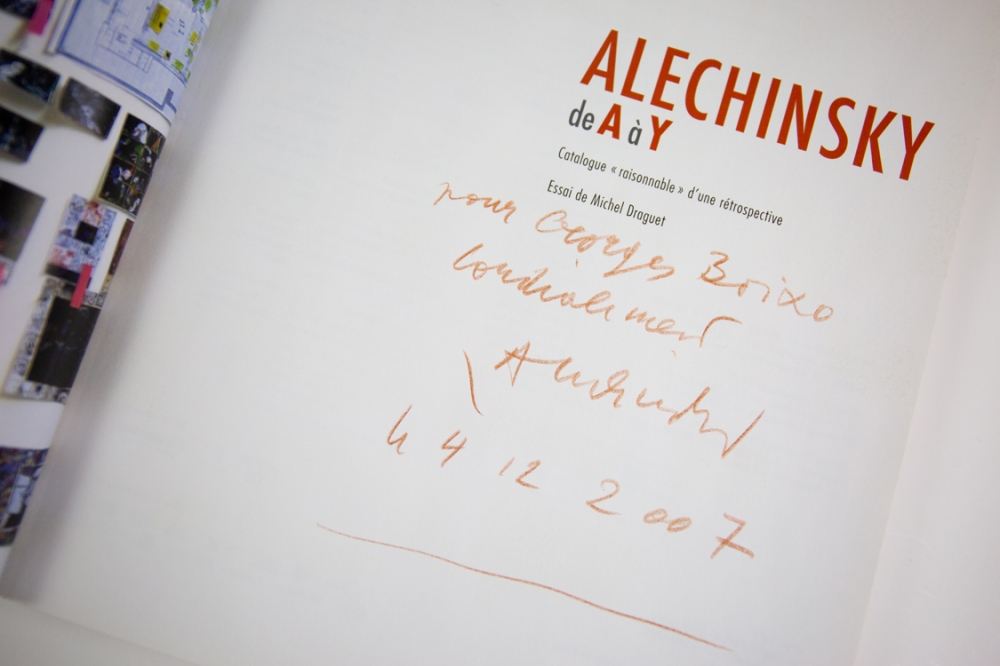 ALECHINSKY
de A à Y
Catalogue « raisonnable » d'une rétrospective
Essai de Michel Draguet
pour Georges Boixo
Cordialement
Alechinsky
le 4 12 2007